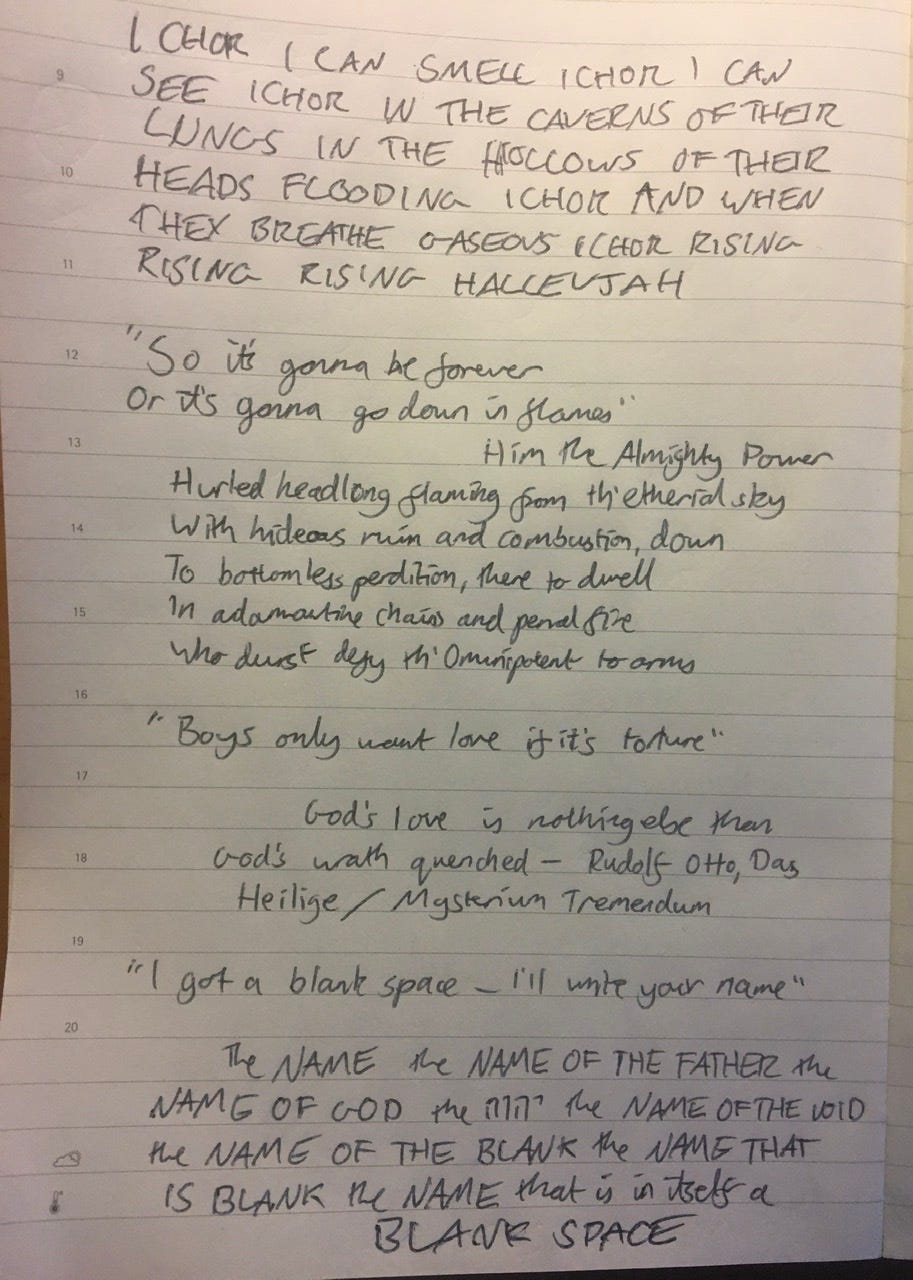 ICHOR I CAN SMELL ICHOR I CAN
9
SEE ICHOR IN THE CAVERNS OF THEIR
LUNGS IN THE HOLLOWS OF THEIR
10
HEADS FLOODING ICHOR AND WHEN
THEY BREATHE GASEOUS ICHOR RISING
11
RISING RISING HALLELUJAH
12
"So it's gonna be forever
Or it's gonna go down in flames"
13
Him the Almighty Power
Hurled headlong flaming from th'etherial sky
14
With hideous ruin and combustion, down
To bottomless perdition, there to dwell
15
In adamantine chains and penal fire
Who durst defy th'Omnipotent to arms
16
"Boys only want love if it's torture"
17
God's love is nothing else than
18
God's wrath quenched — Rudolf Otto, Das
Heilige / Mysterium Tremendum
19
"I got a blank space – I'll write your name"
20
The NAME the NAME OF THE FATHER the
NAME OF GOD the יהוה the NAME OF THE VOID
the NAME OF THE BLANK the NAME THAT
IS BLANK the NAME that is in itself a
BLANK SPACE